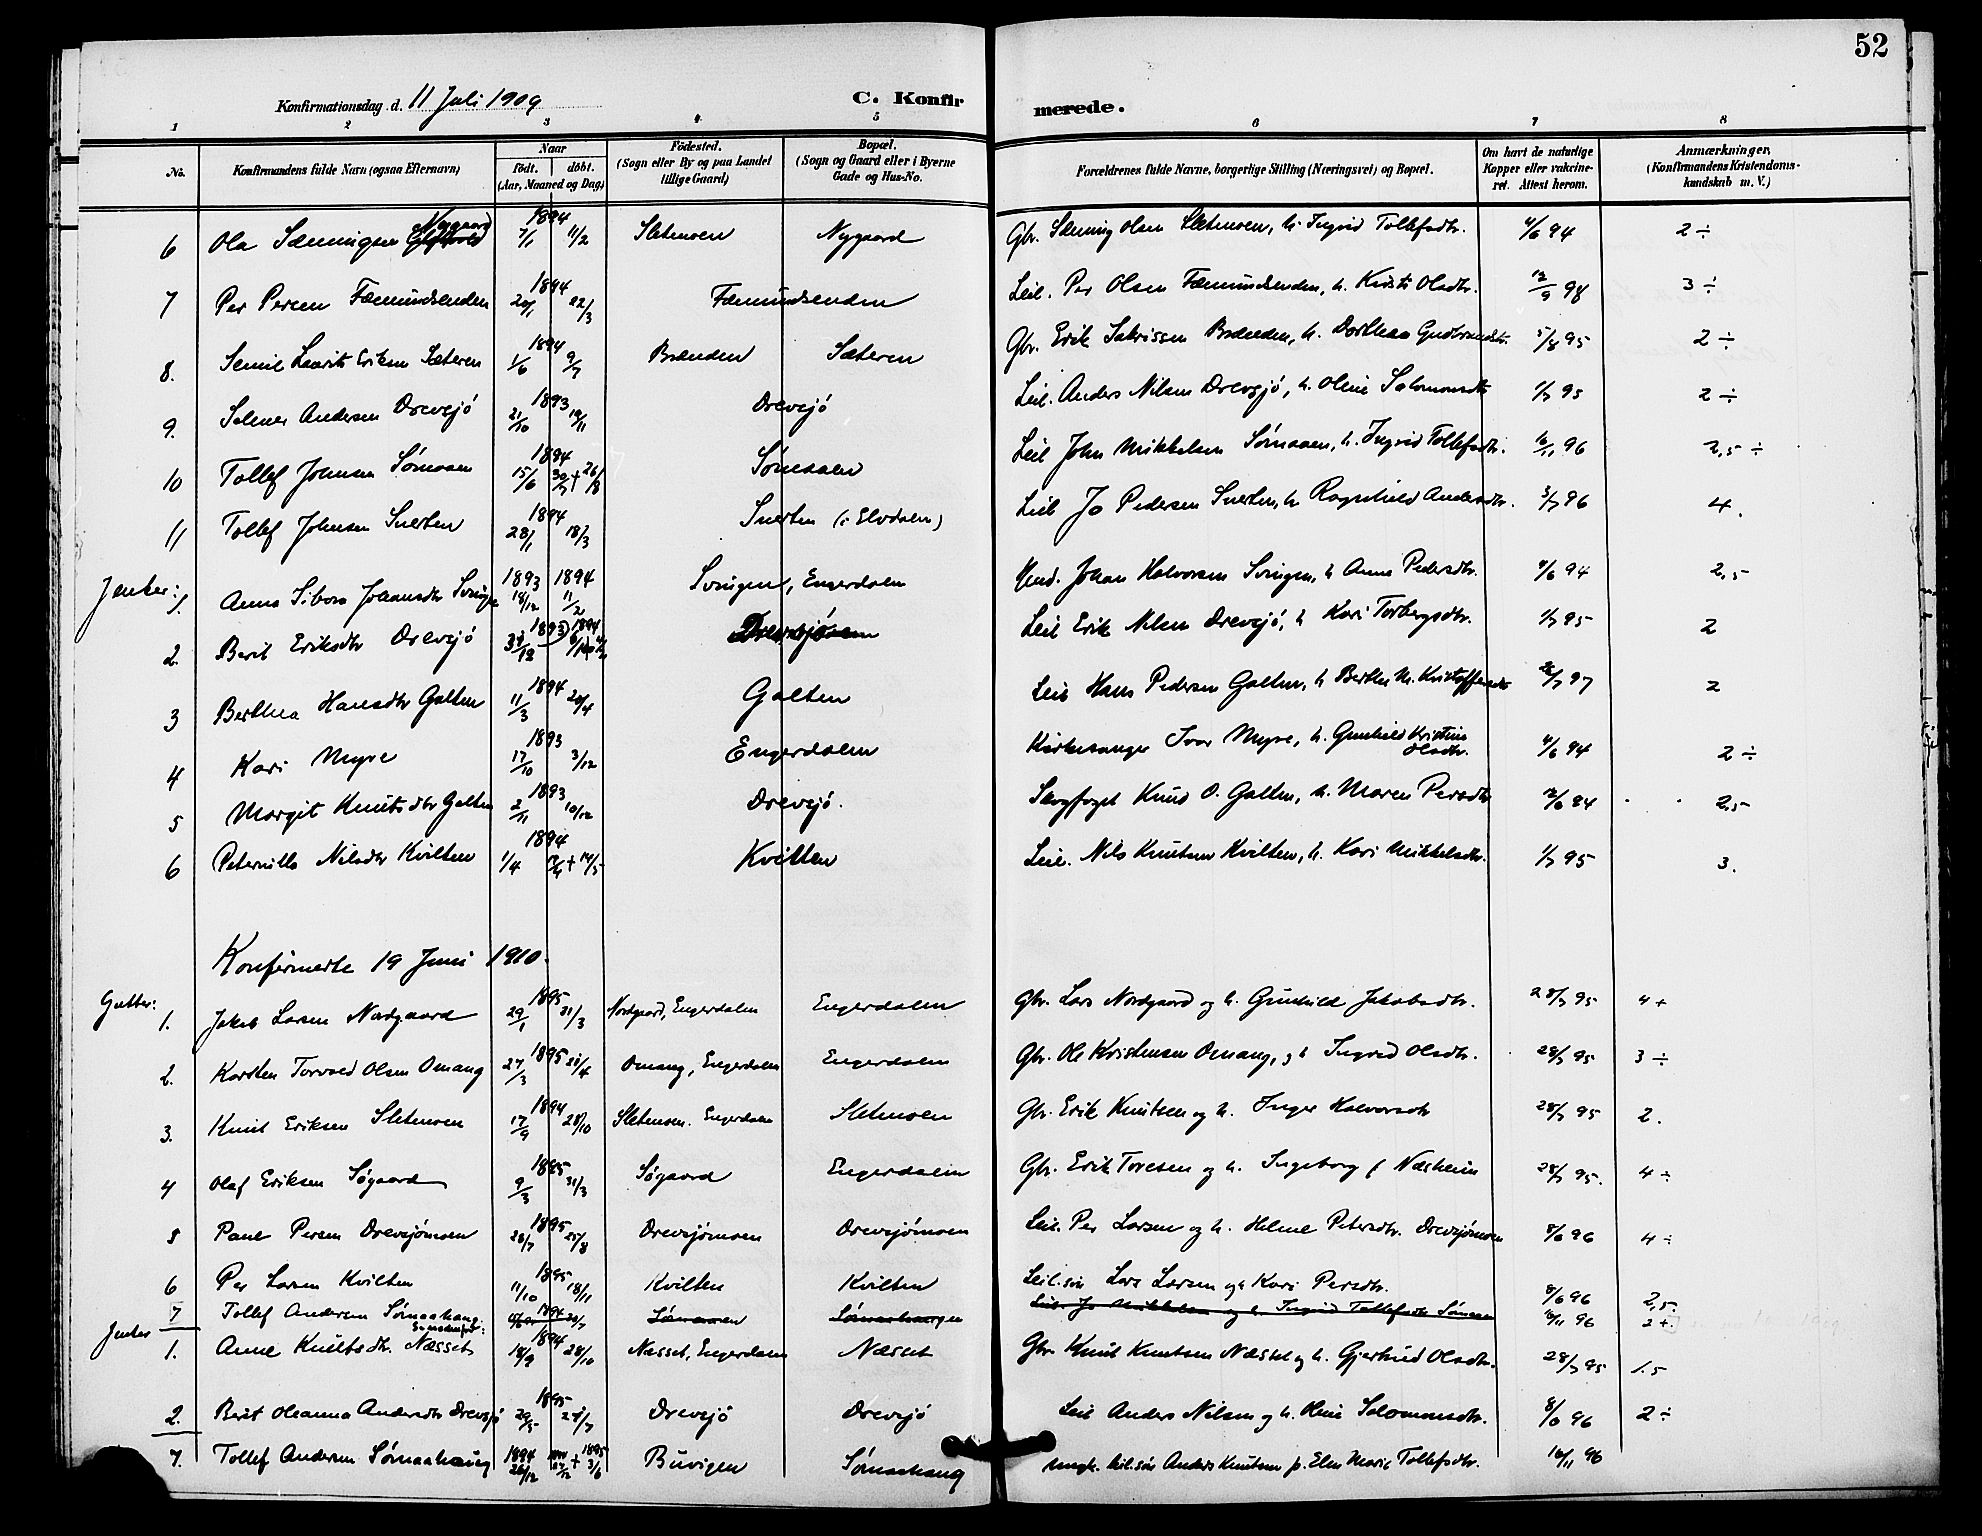 52
Konfirmationsdag d. 11 Juli 1909 C. Konfirmerede.
1 2 3 4 5 6 7 8
No. Konfirmandens fulde Navn (ogsaa Efternavn) Naar født. døbt. (Aar, Maaned og Dag) Fødested. (Sogn eller By og paa Landet tillige Gaard) Bopæl. (Sogn og Gaard eller i Byerne Gade og Hus-No. Forældrenes fulde Navne, borgerlige Stilling (Næringsvei) og Bopæl. Om havt de naturlige Kopper eller vakcineret. Attest herom. Anmærkninger, (Konfirmandens Kristendomskundskab m. V.)
6 Ola Sænningsen Nygaard 1894 7/1 11/2 Sletmoen Nygaard Gbr. Sænning Olsen Sletmoen, h. Ingrid Tollefsdtr. 4/6 94 2 ÷
7 Per Persen Fæmundsenden 1894 20/1 22/3 Fæmundsenden Leil. Per Olsen Fæmundsenden, h. Kirsti Olsdtr. 12/9 98 3 ÷
8. Semil Laurits Eriksen Sæteren 1894 1/6 9/7 Brænden Sæteren Gbr. Erik Sakrissen Brænden, h. Dorthea Gudbrandsdtr. 5/8 95 2 ÷
9. Selmer Andersen Drevsjö 1893 21/10 19/11 Drevsjö Leil. Anders Nilsen Drevsjö, h. Oline Salomonsdtr 1/7 95 2 ÷
10 Tollef Johnsen Sømaaen 1894 15/6 30/7 + 26/8 Sømaaen Leil John Mikkelsen Sømaaen, h. Ingrid Tollefsdtr. 16/11 96 2,5 ÷
11 Tollef Johnsen Snerten 1894 28/1 18/3 Snerten (i Elvdalen) Leil Jo Pedersen Snerten, h Ragnhild Andersdtr. 3/7 96 4.
Jenter: 1. Anna Sibora Johansdtr Svingen 1893 18/12 1894 11/2 Svingen, Engerdalen Johan Halvorsen Svingen, h Anna Pedersdtr. 4/6 94 2,5
2. Berit Eriksdtr Drevsjö 1893 1894 Drevsjö Leil Erik Nilsen Drevsjö, h Kari Torbergsdtr. 1/7 95 2
3 Berthea Hansdtr Galten 1894 11/3 29/4 Galten Leil Hans Pedersen Galten, h Berthe M. Kristoffersdtr 97 2
4 Kari Myre 1893 17/10 3/12 Engerdalen Kirkesanger Ivar Myre, h. Gunhild Kristine Olsdtr. 4/6 94 2 ÷
5 Margit Knutsdtr Galten 1893 2/11 10/12 Drevsjö. Skogfoget Knud O. Galten, h. Maren Persdtr 94 2,5
6 Peternille Nilsdtr Kvilten 1894 1/4 + 14/5 Kvilten Leil. Nils Knutsen Kvilten, h. Kari Mikkelsdtr. 1/7 95 3.
Konfirmerte 19 Juni 1910.
Gutter: 1. Jakob Larsen Nordgaard 1895 29/1 31/3 Nordgaard, Engerdalen Engerdalen Gbr. Lars Nordgaard og h. Gunhild Jakobsdtr. 28/7 95 4 +
2. Karsten Torvald Olsen Omang 1895 27/3 21/4 Omang, Engerdalen Engerdalen Gbr. Ole Kristensen Omang, g h Ingrid Olsdtr. 28/7 95 3 ÷
3. Knut Eriksen Sletmoen 1894 17/9 28/10 Sletmoen. Engerdalen Sletmoen Gbr. Erik Knutsen og h. Inger Halvorsdtr 28/7 95 2.
4 Olaf Eriksen Søgaard 1895 9/3 31/3 Søgaard Engerdalen Gbr. Erik Toresen og h. Ingeborg f Næsheim 28/7 95. 4 ÷
5 Paul Persen Drevsjømoen 1895 28/7 25/8 Drevsjømoen Drevsjømoen Leil. Per Larsen og h. Helene Petersdtr. Drevsjømoen 8/6 96 4 ÷
6 Per Larsen Kvilten 1895 11/10 18/11 Kvilten Kvilten Leil.søn Lars Larsen og h Kari Persdtr. 8/6 96 2,5.
7 Tollef Andersen Sømaahaug 1894 Sømaaen Sømaahaugen Leil. Jo Mikkelsen og h. Ingrid Tollefsdtr Sømaaen 16/11 96 2 +.
Jenter 1. Anne Knutsdtr. Næsset 1894 18/9 28/10 Næsset, Engerdalen Næsset Gbr Knut Knutsen Næsset og h. Gjertrud Olsdtr. 28/7 95 1.5
2. Berit Oleanna Andersdtr Drevsjö 1895 29/5 21/7 Drevsjö Drevsjö Leil Anders Nilsen og h. Oline Salomonsdtr. 8/6 96 2 ÷
7. Tollef Andersen Sømaahaug 1894 26/12 + 1895 3/6 Buvigen Sømaahaug ungk. leil.søn Anders Knutsen p. Elen Marie Tollefsdtr. 16/11 96